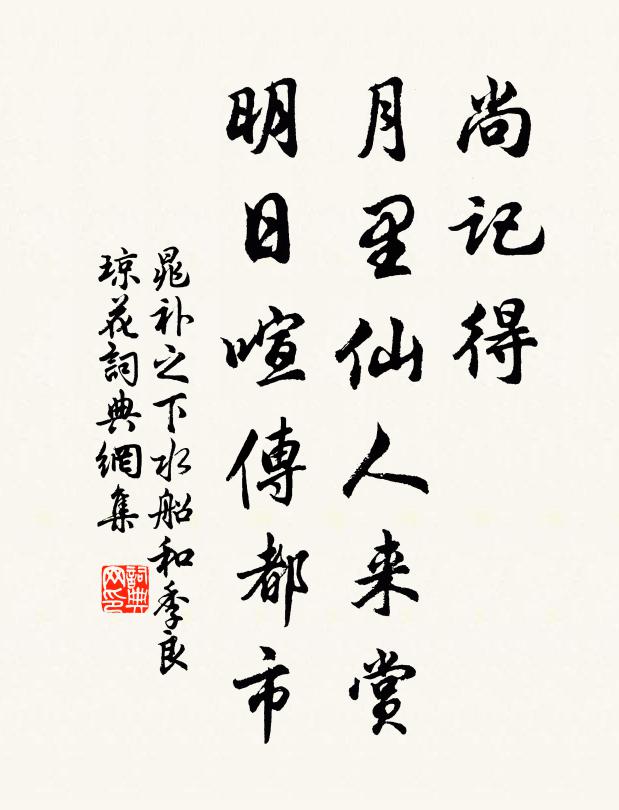 尚记得
月里仙人来赏
明日喧傳都市
晁补之下水船和季良
琼花詞典網集
詞典網印